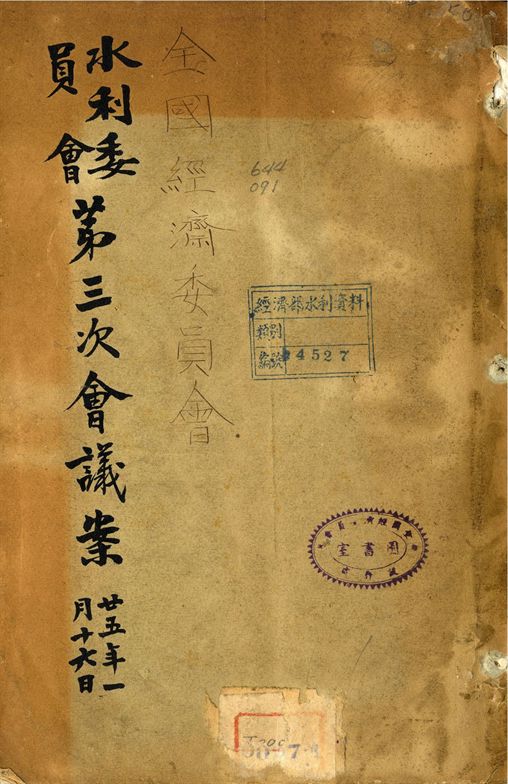 全國經濟委員會
水利委員會第三次會議案
廿五年一月十六日
644
091
經濟部水利資料
類別
編號 4527
圖書室